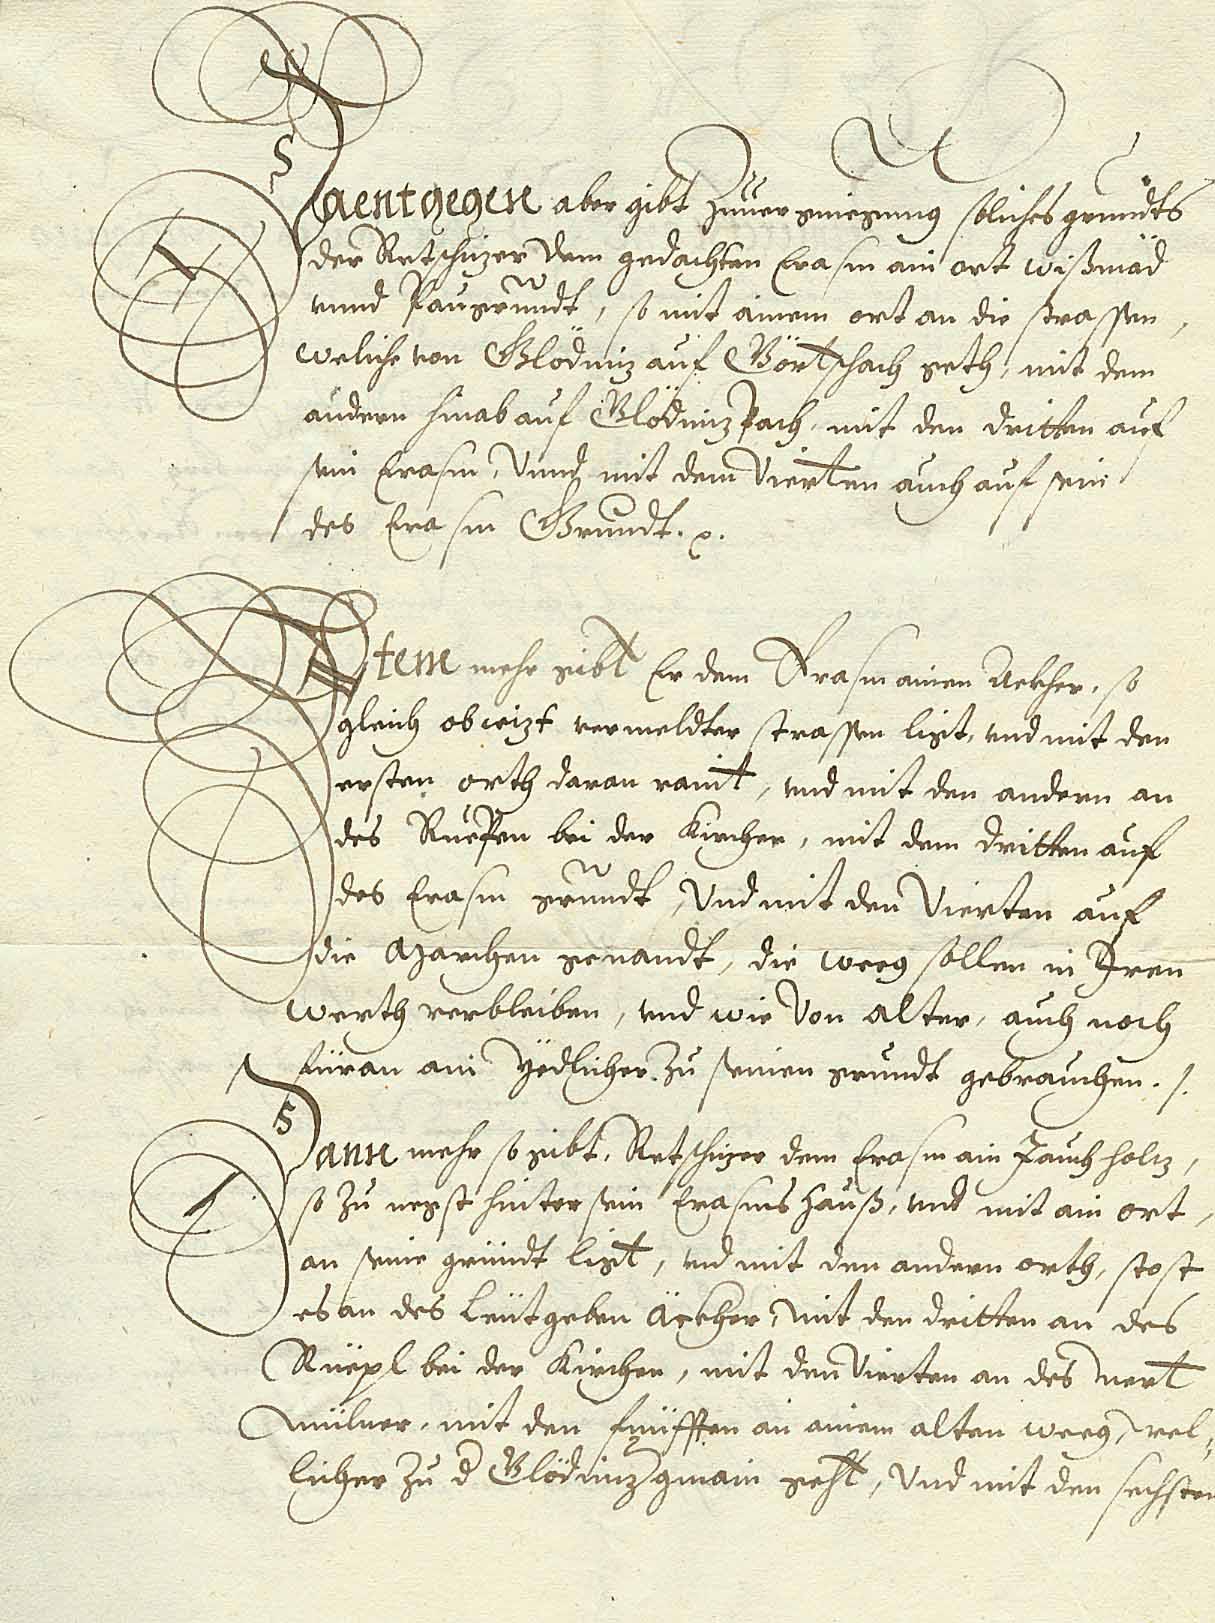 Daentgegen aber gibt zuuergniegung soliches grundts
der Retschizer dem gedachten Erasm ain ort wißmäd
vnnd Paugrundt, so mit ainem ort an die strassen,
weliche von Glödniz auf Görtschach geth, mit dem
andern hinab auf Glödniz Pach, mit den dritten auf
sein Erasm, Vnnd mit dem Vierten auch auf sein
des Erasm Grundt.
Item mehr gibt Er dem Erasm ainen Ackher, so
gleich ob iezt vermeldter strassen ligt, vnd mit den
ersten orth daran raint, vnd mit den andern an
des Ruepen bei der Kircher, mit dem dritten auf
des Erasm grundt, Vnd mit den Vierten auf
die Marchen genandt, die weeg sollen in Iren
werth verbleiben, vnd wie Von alter, auch noch
füran ain Yedlicher zu seinen grundt gebrauchen.
Dann mehr so gibt, Retschizer dem Erasm ain Jauch holz,
so zu negst hinter sein Erasms hauß, vnd mit ain ort,
an seine gründt ligt, vnd mit den andern orth, stost
es an des Leütgeben Äckher, mit den dritten an des
Rüepl bei der Kirchen, mit den Vierten an des
mülner, mit den fünfften an ainem alten weeg, wel-
licher zu d Glödniz gmain geht, Vnd mit den sechsten